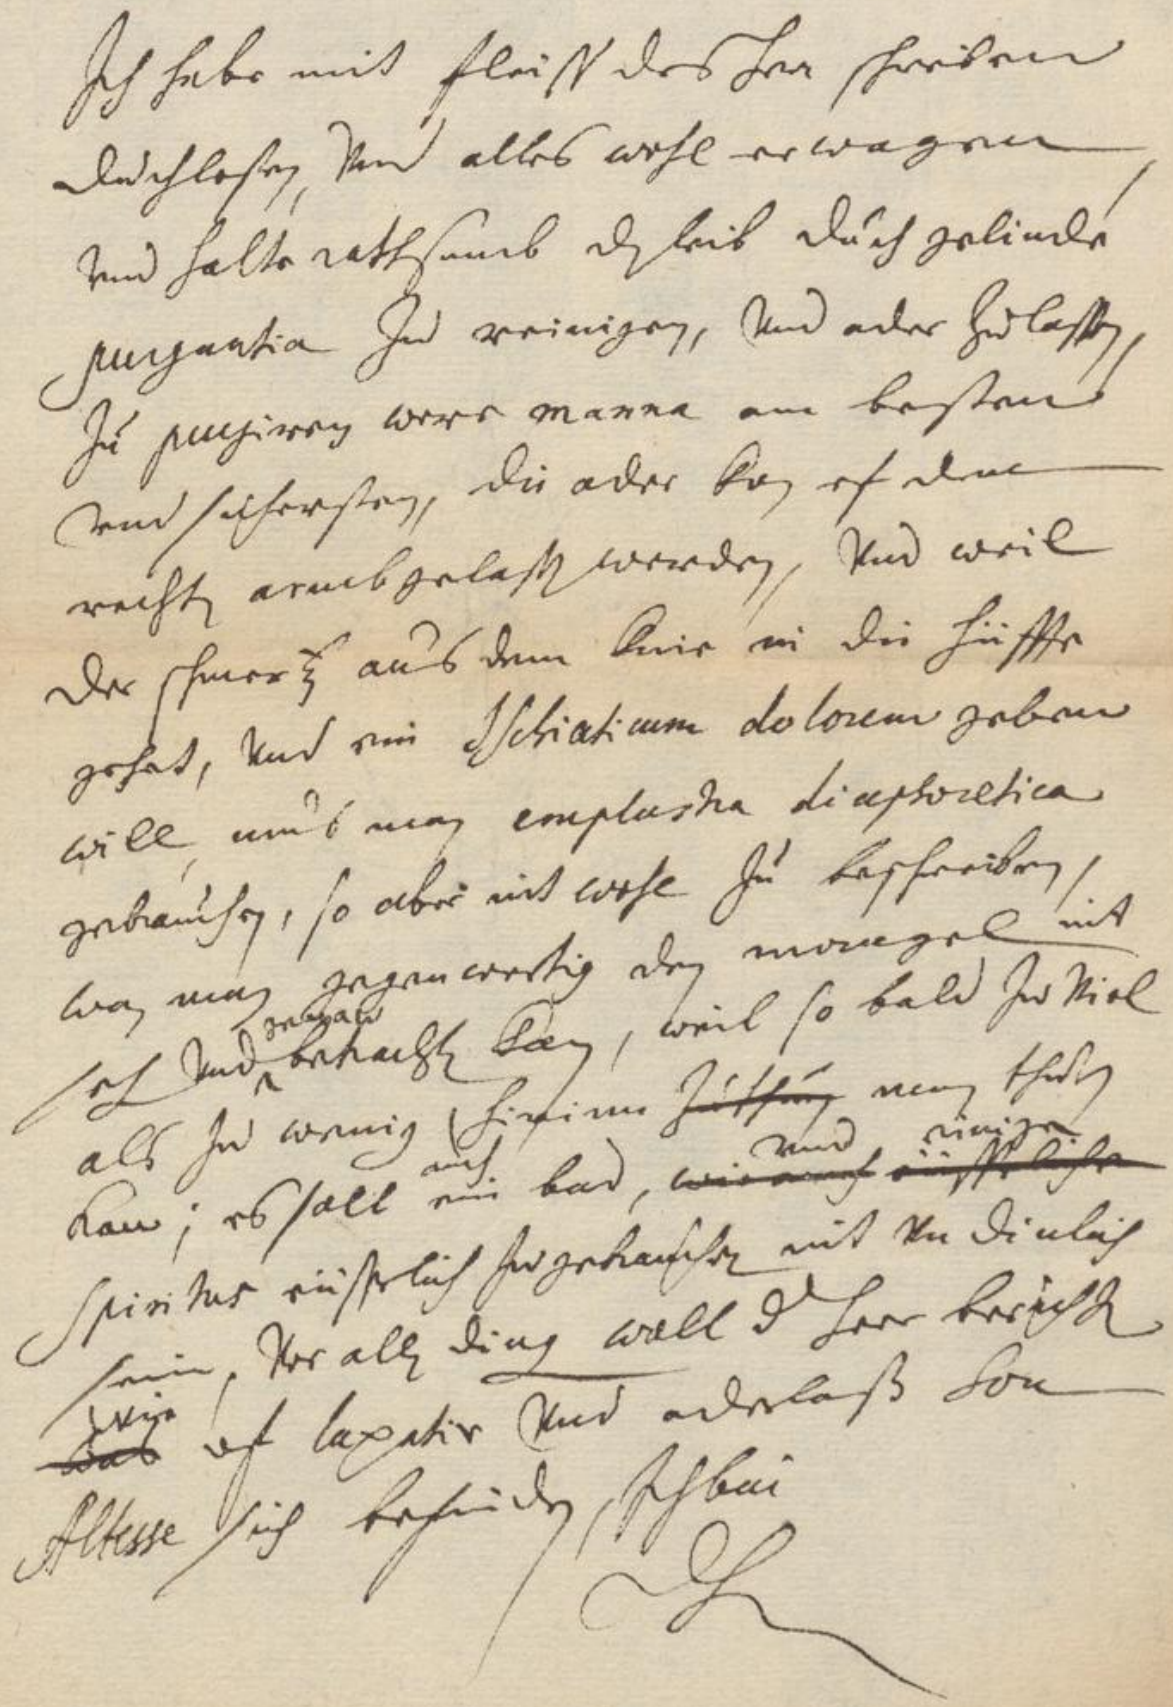 Ich habe mit fleiss des Herr schreiben
durchlesen, Vnd alles wohl erwagen,
Vnd halte rathsamb dz leib durch gelinde
purgantia zu reinigen, Vnd ader zu lassen,
zu purgiren were manna am besten
vnd sichersten, die ader kan uf dem
rechten armb gelassen werden, Vnd weil
der schmertz aus dem knie in die hüffte
gehet, Vnd ein Ischiaticum dolorem geben
will, mus man emplastra diaphoretica
gebrauchen, so aber nit wohl zu beschreiben,
wan man gegenwertig den mangel nit
seh Vnd genaw betrachten kan, weil so bald zu Viel
als zu wenig hirinn man thun
kan; es solt auch ein bad, vnd einige
spiritus eüsserlich zu gebrauchen nit Vndinlich
sein, Vor allen ding woll d Herr berichten
wie uf laxativ Vnd aderlaß Son
Altesse sich befinden, Ich bin